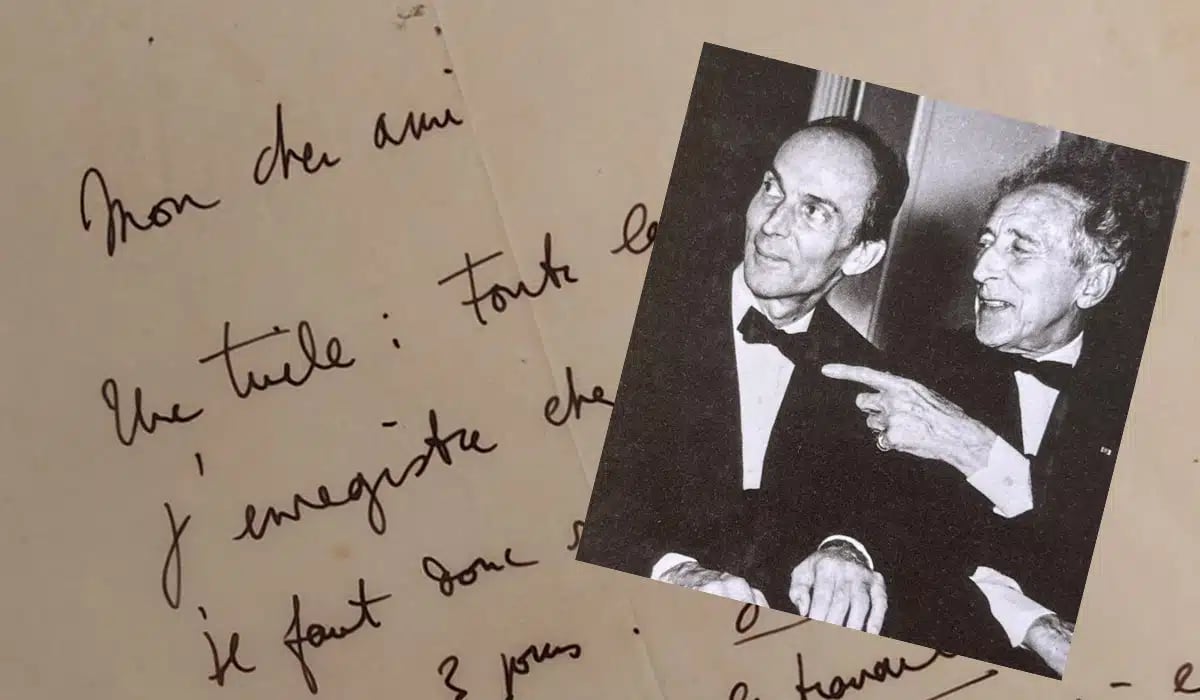 Mon cher ami
Une tuile : toute
j'enregistre
il faut donc
3 jours